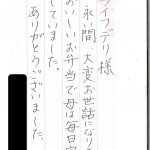 ライフデリ様
永い間 大変お世話になり
おいしいお弁当で母は毎日完
していました。
ありがとうございました。